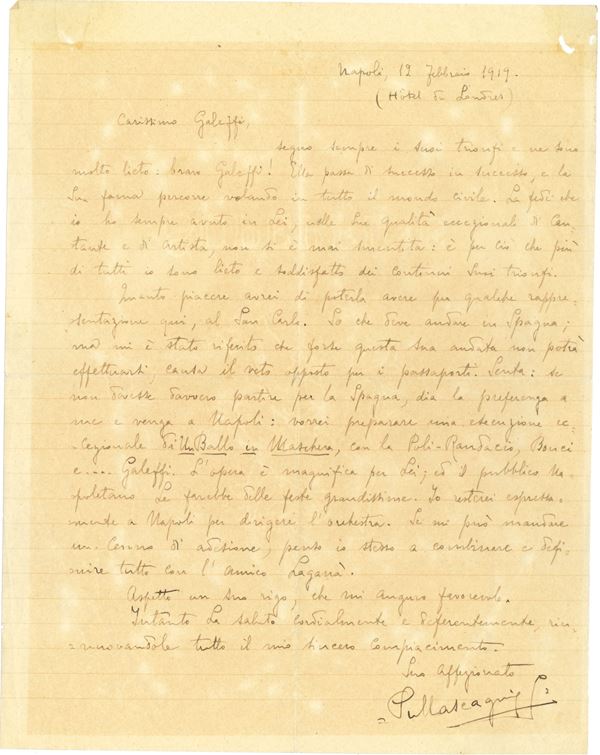 Napoli, 12 Febbraio 1919.
(Hôtel de Londres)
Carissimo Galeffi,
seguo sempre i suoi trionfi e ne sono
molto lieto: bravo Galeffi! Ella passa di successo in successo, e la
Sua fama percorre volando in tutto il mondo civile. La fede che
io ho sempre avuto in Lei, nelle Sue qualità eccezionali di Can-
tante e di Artista, non si è mai smentita: è per ciò che più
di tutti io sono lieto e soddisfatto dei continui Suoi trionfi.
Quanto piacere avrei di poterla avere per qualche rappre-
sentazione qui, al San Carlo. So che deve andare in Spagna;
ma mi è stato riferito che forse questa Sua andata non potrà
effettuarsi, causa il veto opposto per i passaporti. Senta: se
non dovesse davvero partire per la Spagna, dia la preferenza a
me e venga a Napoli: vorrei preparare una esecuzione ec-
cezionale di Un Ballo in Maschera, con la Poli-Randacio, Bonci
e.... Galeffi. L'opera è magnifica per Lei; ed il pubblico Na-
poletano Le farebbe delle feste grandissime. Io resterei espressa-
mente a Napoli per dirigere l'orchestra. Se mi può mandare
un cenno di adesione, penso io stesso a combinare e defi-
nire tutto con l'amico Laganà.
Aspetto un Suo rigo, che mi auguro favorevole.
Intanto La saluto cordialmente e deferentemente, rin-
=nuovandole tutto il mio sincero compiacimento.
Suo Affezionato
=P. Mascagni=